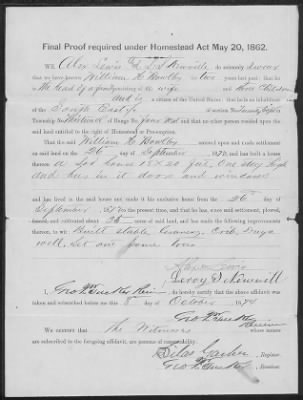 Final Proof required under Homestead Act May 20, 1862.
WE, Alex Lewis & L. D. Newitt do solemnly swear
that we have known William H. Hawley for two years last past; that he
is the head of a family consisting of a wife and three Children
and is a citizen of the United States; that he is an inhabitant
of the South East of section No. Twenty
Township No. Thirteen of Range No. four and that no other person resided upon the
said land entitled to the right of Homestead or Pre-emption.
That the said William H. Hawley entered upon and made settlement
on said land on the 26 day of September, 1870, and has built a house
thereon a Log house 18 X 20 feet One Story high
and has in it door and windows
and has lived in the said house and made it his exclusive home from the 26th day of
September to the present time, and that he has, since said settlement, plowed,
fenced, and cultivated about 26 acres of said land, and has made the following improvements
thereon, to wit: Built stable, Granary, Crib, Dug a
well, Set out some trees
Leroy D. Newitt
I, Geo. W. Tucker Receiver, do hereby certify that the above affidavit was
taken and subscribed before me this 5 day of October 1874
Geo. W. Tucker
Receiver
WE CERTIFY that the Witnesses whose names
are subscribed to the foregoing affidavit, are persons of respectability.
, Register.
Geo. W. Tucker, Receiver.